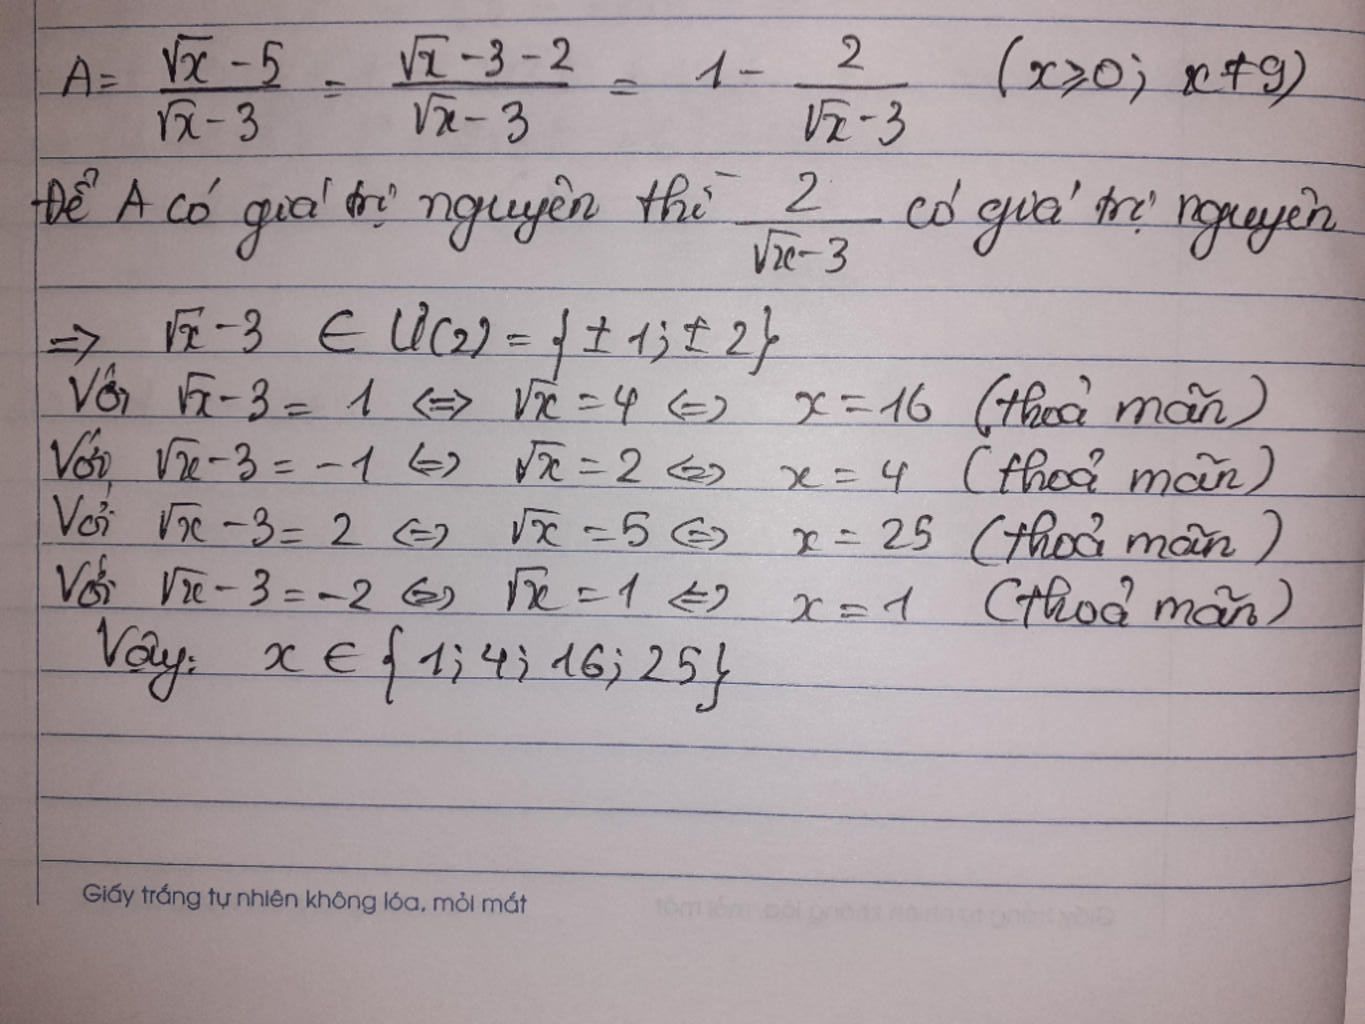 A = (√x - 5)/(√x - 3) = (√x - 3 - 2)/(√x - 3) = 1 - 2/(√x - 3) (x ⩾ 0; x ≠ 9)
Để A có giá trị nguyên thì 2/(√x - 3) có giá trị nguyên
=> √x - 3 ∈ Ư(2) = {± 1; ± 2}
Với √x - 3 = 1 <=> √x = 4 <=> x = 16 (thoả mãn)
Với √x - 3 = -1 <=> √x = 2 <=> x = 4 (thoả mãn)
Với √x - 3 = 2 <=> √x = 5 <=> x = 25 (thoả mãn)
Với √x - 3 = -2 <=> √x = 1 <=> x = 1 (thoả mãn)
Vậy: x ∈ {1; 4; 16; 25}
Giấy trắng tự nhiên không lóa, mỏi mắt